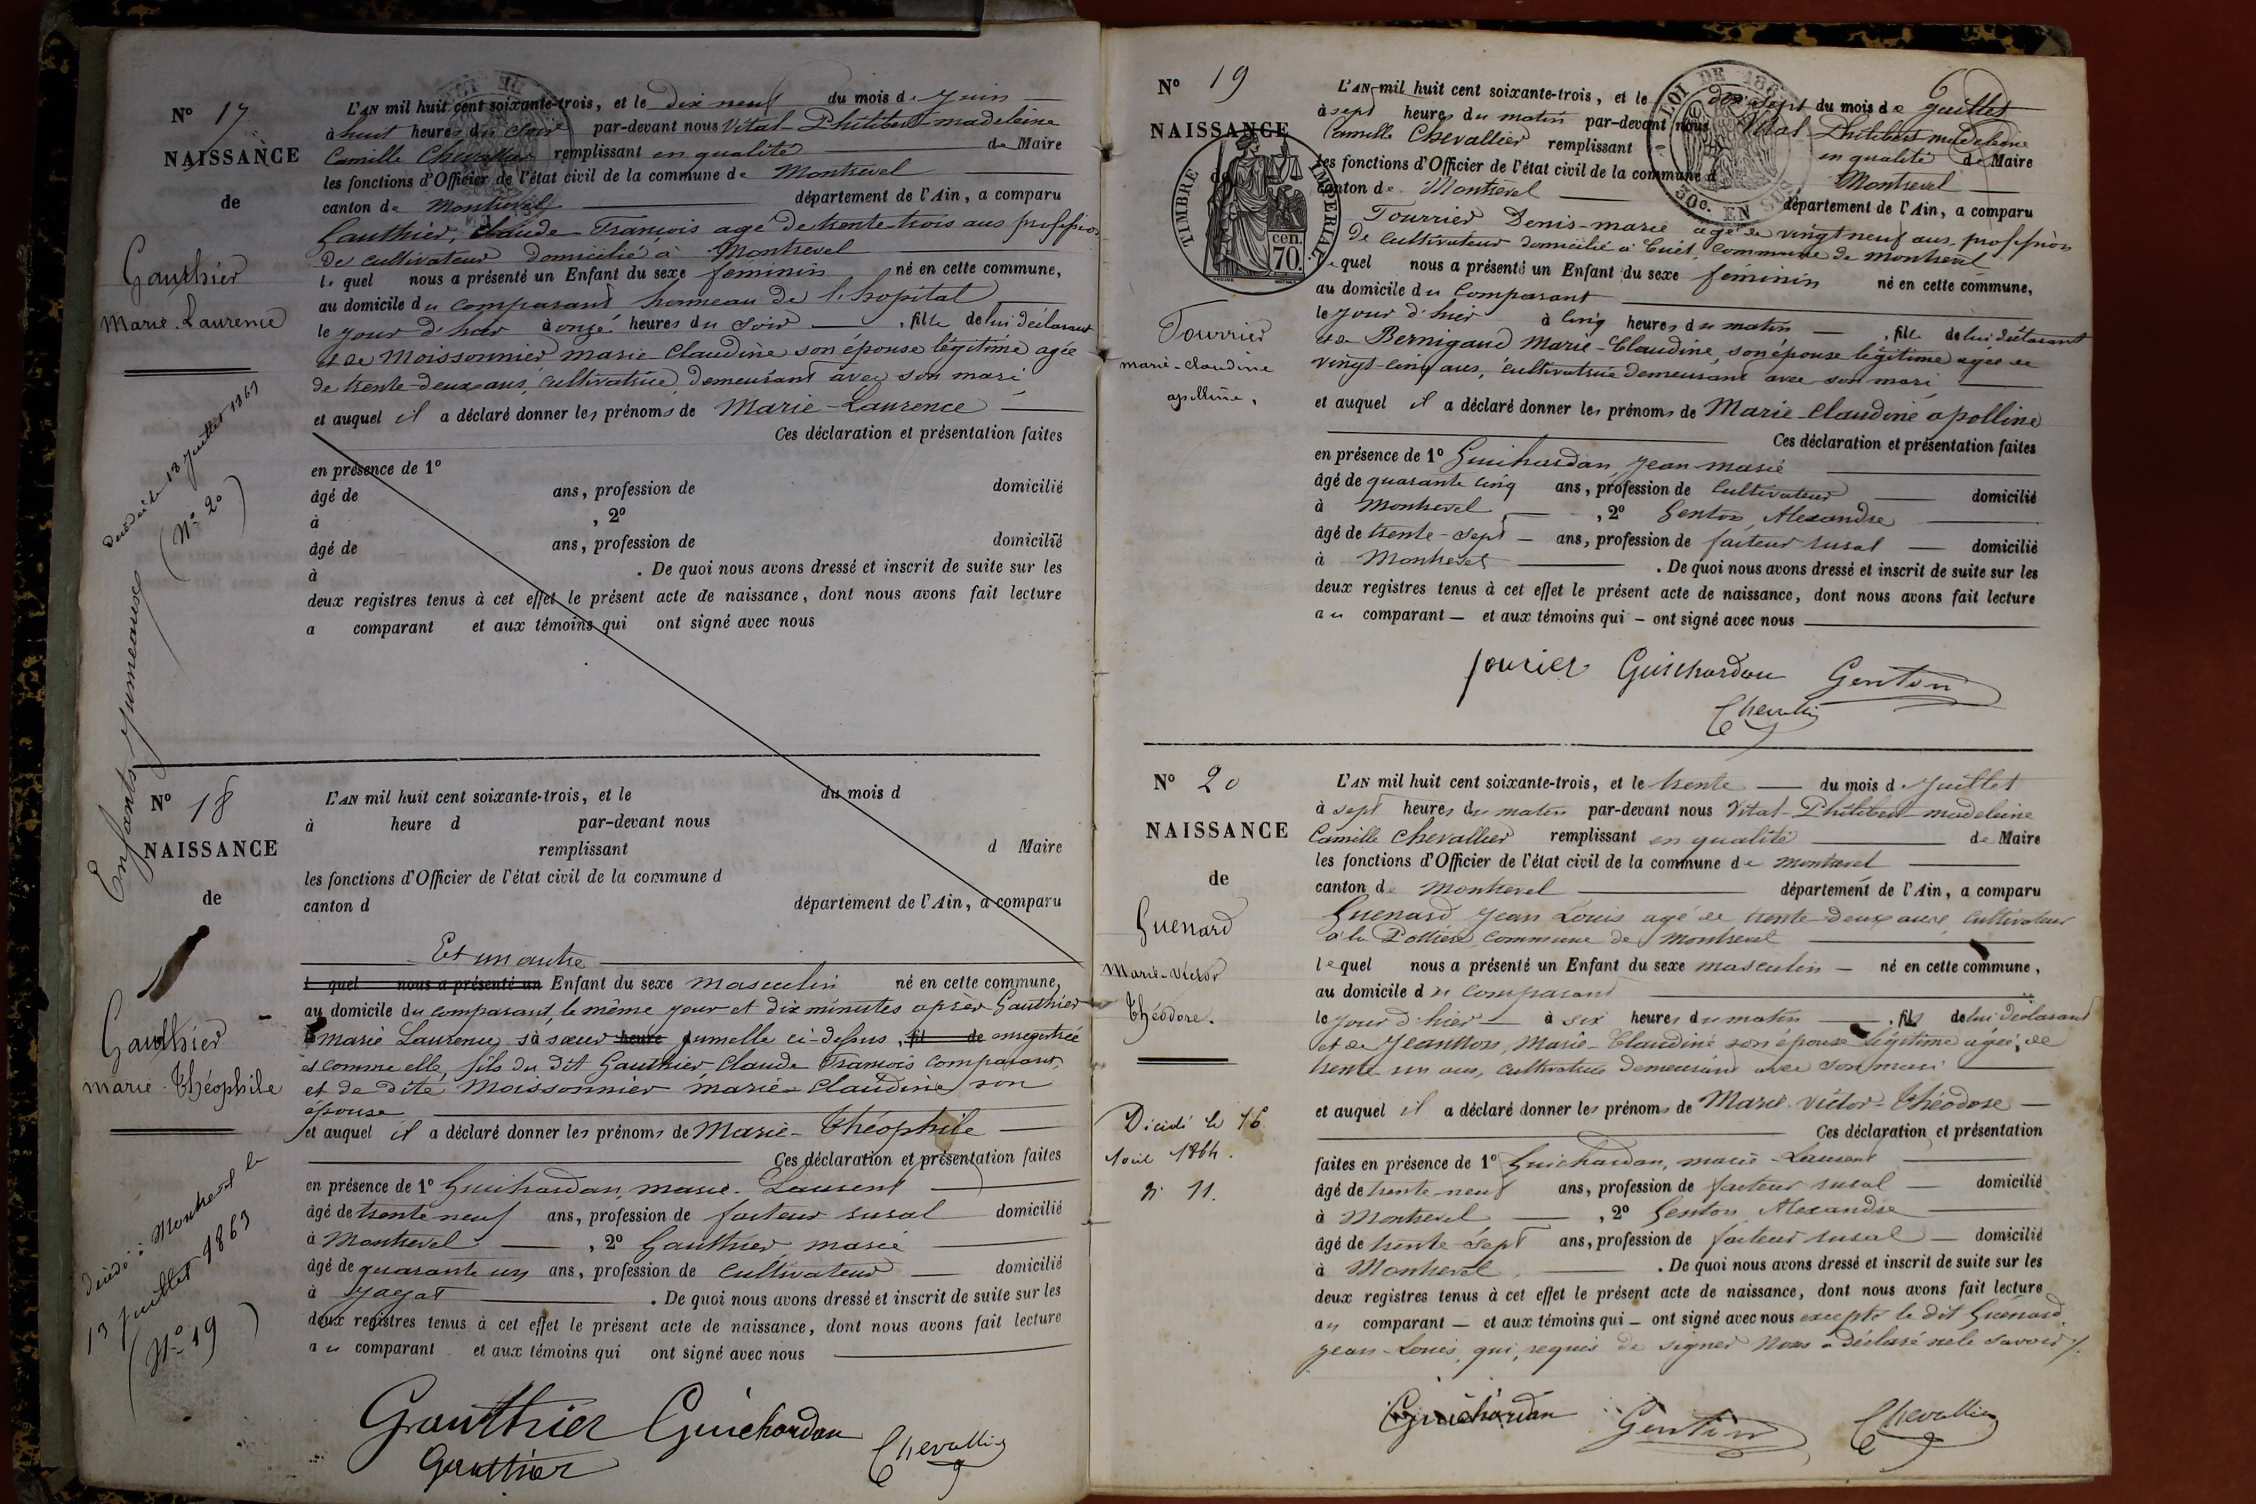 N° 17
NAISSANCE
de
Gauthier
Marie-Laurence
décédée le 18 Juillet 1863
(N° 20)
Enfants Jumeaux
L'AN mil huit cent soixante-trois, et le dix neuf du mois de Juin
à huit heures du soir par-devant nous Vital-Philibert-madeleine
Camille Chevallier remplissant en qualité de Maire
les fonctions d'Officier de l'état civil de la commune de Montrevel
canton de Montrevel département de l'Ain, a comparu
Gauthier, Claude-François agé de trente-trois ans profession
de cultivateur domicilié à Montrevel
le quel nous a présenté un Enfant du sexe feminin né en cette commune,
au domicile du comparant hameau de l'hopital
le jour d'hier à onze heures du soir, fille de lui déclarant
et de Moissonnier marie-Claudine son épouse légitime agée
de trente-deux ans, cultivatrice demeurant avec son mari
et auquel il a déclaré donner les prénoms de Marie-Laurence
Ces déclaration et présentation faites
en présence de 1°
âgé de ans, profession de domicilié
à , 2°
âgé de ans, profession de domicilié
à . De quoi nous avons dressé et inscrit de suite sur les
deux registres tenus à cet effet le présent acte de naissance, dont nous avons fait lecture
a comparant et aux témoins qui ont signé avec nous
N° 18
NAISSANCE
de
Gauthier
marie-Théophile
décédé à Montrevel le
13 juillet 1863
(N° 19)
L'AN mil huit cent soixante-trois, et le du mois d
à heure d par-devant nous
remplissant d Maire
les fonctions d'Officier de l'état civil de la commune d
canton d département de l'Ain, a comparu
Et un autre
l quel nous a présenté un Enfant du sexe masculin né en cette commune,
au domicile du comparant, le même jour et dix minutes après Gauthier
le marie Laurence, sa sœur heure jumelle ci-dessus, fil de enregistrée
et comme elle, fils du dit Gauthier Claude François comparant,
et de dite Moissonnier marie-Claudine son
épouse
et auquel il a déclaré donner les prénoms de Marie-Théophile
Ces déclaration et présentation faites
en présence de 1° Guichardan, marie-Laurent
âgé de trente neuf ans, profession de facteur rural domicilié
à Montrevel , 2° Gauthier marie
âgé de quarante un ans, profession de cultivateur domicilié
à Jayat . De quoi nous avons dressé et inscrit de suite sur les
deux registres tenus à cet effet le présent acte de naissance, dont nous avons fait lecture
au comparant et aux témoins qui ont signé avec nous
Gauthier Guichardan
Gauthier Chevallier
N° 19
NAISSANCE
de
TIMBRE IMPERIAL
70 cen.
Tourrier
marie-claudine
apolline.
LOI DE 186
50c. EN SUS
L'AN mil huit cent soixante-trois, et le dix sept du mois de Juillet
à sept heures du matin par-devant nous Vital-Philibert madeleine
Camille Chevallier remplissant en qualité de Maire
les fonctions d'Officier de l'état civil de la commune d Montrevel
canton de Montrevel département de l'Ain, a comparu
Tourrier Denis-marie agé de vingt neuf ans profession
de cultivateur domicilié à Cuet, commune de montrevel
le quel nous a présenté un Enfant du sexe feminin né en cette commune,
au domicile du comparant
le jour d'hier à cinq heures du matin, fille de lui déclarant
et de Bernigaud Marie-Claudine, son épouse légitime agée de
vingt-cinq ans, cultivatrice demeurant avec son mari
et auquel il a déclaré donner les prénoms de Marie Claudine apolline
Ces déclaration et présentation faites
en présence de 1° Guichardan Jean-marie
âgé de quarante cinq ans, profession de cultivateur domicilié
à Montrevel , 2° Genton Alexandre
âgé de trente-sept ans, profession de facteur rural domicilié
à Montrevel . De quoi nous avons dressé et inscrit de suite sur les
deux registres tenus à cet effet le présent acte de naissance, dont nous avons fait lecture
au comparant et aux témoins qui ont signé avec nous
Guichardan Genton
Chevallier
N° 20
NAISSANCE
de
Guenard
Marie-Victor
Théodore.
Décédé le 16
Avril 1864.
N° 11.
L'AN mil huit cent soixante-trois, et le trente du mois d Juillet
à sept heures du matin par-devant nous Vital-Philibert-madeleine
Camille Chevallier remplissant en qualité de Maire
les fonctions d'Officier de l'état civil de la commune de montrevel
canton de Montrevel département de l'Ain, a comparu
Guenard Jean Louis agé de trente-deux ans, cultivateur
à la commune de Montrevel
le quel nous a présenté un Enfant du sexe masculin né en cette commune,
au domicile du comparant
le jour d'hier à six heures du matin, fils de lui déclarant
et de Jeannon, Marie-Claudine son épouse légitime agée de
trente un ans, cultivatrice demeurant avec son mari
et auquel il a déclaré donner les prénoms de Marie-Victor-Théodore
Ces déclaration et présentation
faites en présence de 1° Guichardan, marie-Laurent
âgé de trente neuf ans, profession de facteur rural domicilié
à Montrevel , 2° Genton Alexandre
âgé de trente-sept ans, profession de facteur rural domicilié
à Montrevel . De quoi nous avons dressé et inscrit de suite sur les
deux registres tenus à cet effet le présent acte de naissance, dont nous avons fait lecture
au comparant et aux témoins qui ont signé avec nous excepté le dit Guenard
Jean-Louis, qui, requis de signer nous a déclaré ne le savoir
Guichardan Genton Chevallier